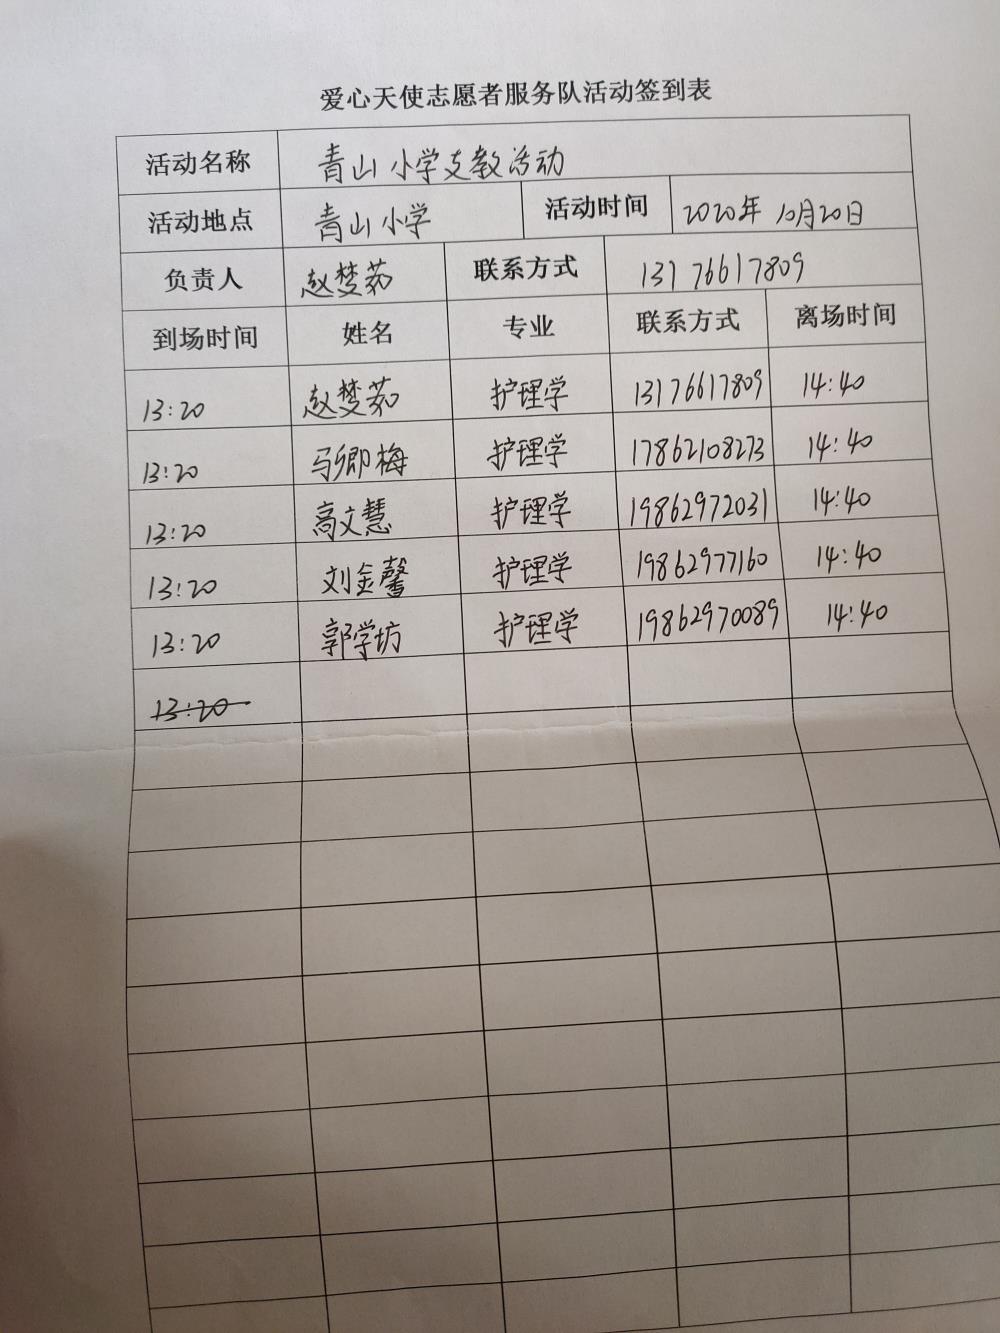 爱心天使志愿者服务队活动签到表
活动名称 青山小学支教活动
活动地点 青山小学 活动时间 2020年 10月20日
负责人 赵梦茹 联系方式 13176617809
到场时间 姓名 专业 联系方式 离场时间
13:20 赵梦茹 护理学 13176617809 14:40
13:20 马卿梅 护理学 17862108273 14:40
13:20 高文慧 护理学 19862972031 14:40
13:20 刘金馨 护理学 19862977160 14:40
13:20 郭学坊 护理学 19862970089 14:40
13:20